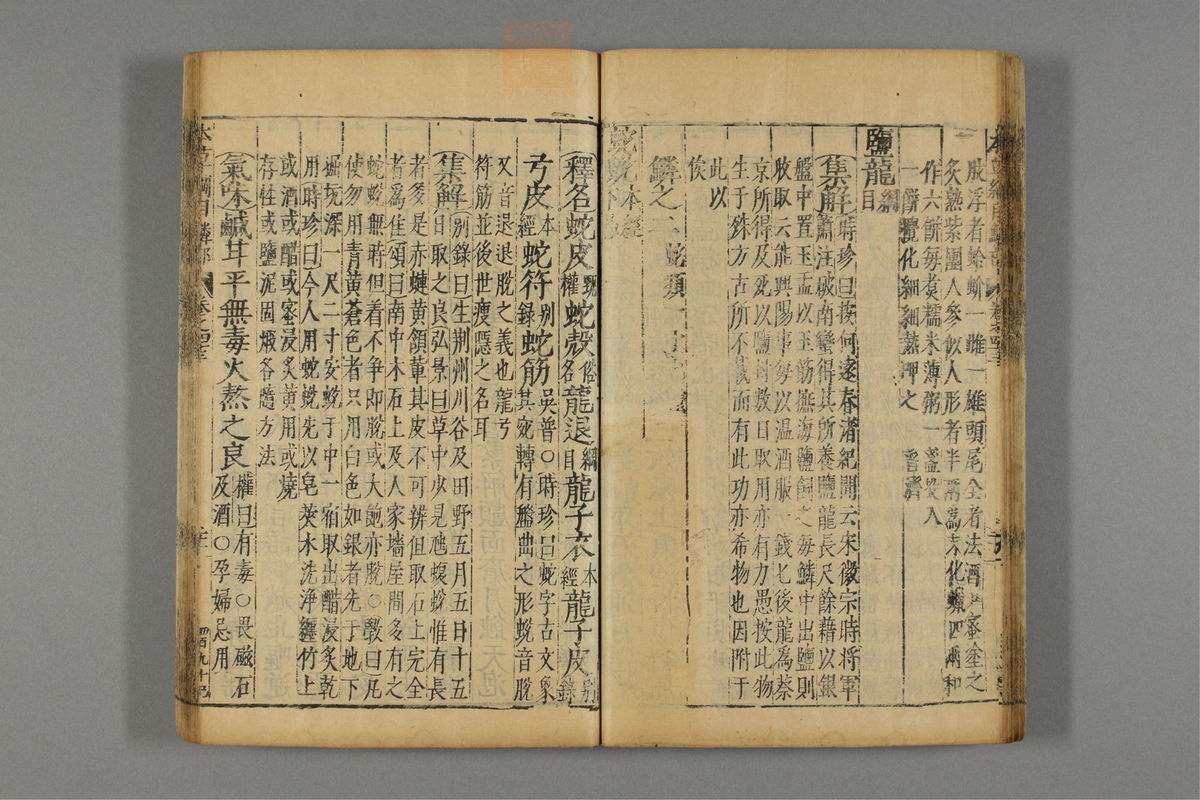 股浮者蛤蚧一雌一雄頭尾全者法酒和蜜塗之
炙熟紫團人參似人形者半兩爲末化蠟四兩和
作六餅每煑糯米薄粥一盞投入
一餅攪化細細熱呷之 普濟
鹽龍 綱目
集解 時珍曰按何薳春渚紀聞云宋徽宗時將軍
蕭注破南蠻得其所養鹽龍長尺餘藉以銀
盤中置玉盂以玉筯撫海鹽飼之每鱗中出鹽則
收取云能興陽事每以温酒服一錢匕後龍爲蔡
京所得及死以鹽封數日取用亦有力愚按此物
生于殊方古所不載而有此功亦希物也因附于
此以
俟
鱗之二 蛇類一十
蛇蛻 本經
釋名 蛇皮 甄權 蛇殻 俗名 龍退 綱目 龍子衣 本經 龍子皮 别錄
弓皮 本經 蛇符 别錄 蛇筋 吳普○時珍曰蛇字古文象其宛轉有盤曲之形蛻音脫
又音退退脫之義也龍弓
符筋並後世瘦隱之名耳
集解 别錄曰生荆州川谷及田野五月五日十五
日取之良弘景曰草中少見虺蝮蛻惟有長
者多是赤蝀黄頷輩其皮不可辨但取石上完全
者爲佳頌曰南中木石上及人家墻屋間多有之
蛇蛻無時但着不争即脫或大飽亦脫○斆曰凡
使勿用青黄蒼色者只用白色如銀者先于地下
掘坑深一尺二寸安蛻于中一宿取出醋浸炙乾
用時珍曰今人用蛇蛻先以皂莢水洗淨纏竹上
或酒或醋或蜜浸炙黄用或燒
存性或鹽泥固煅各隨方法
氣味 鹹甘平無毒火熬之良 權曰有毒○畏磁石
及酒○孕婦忌用